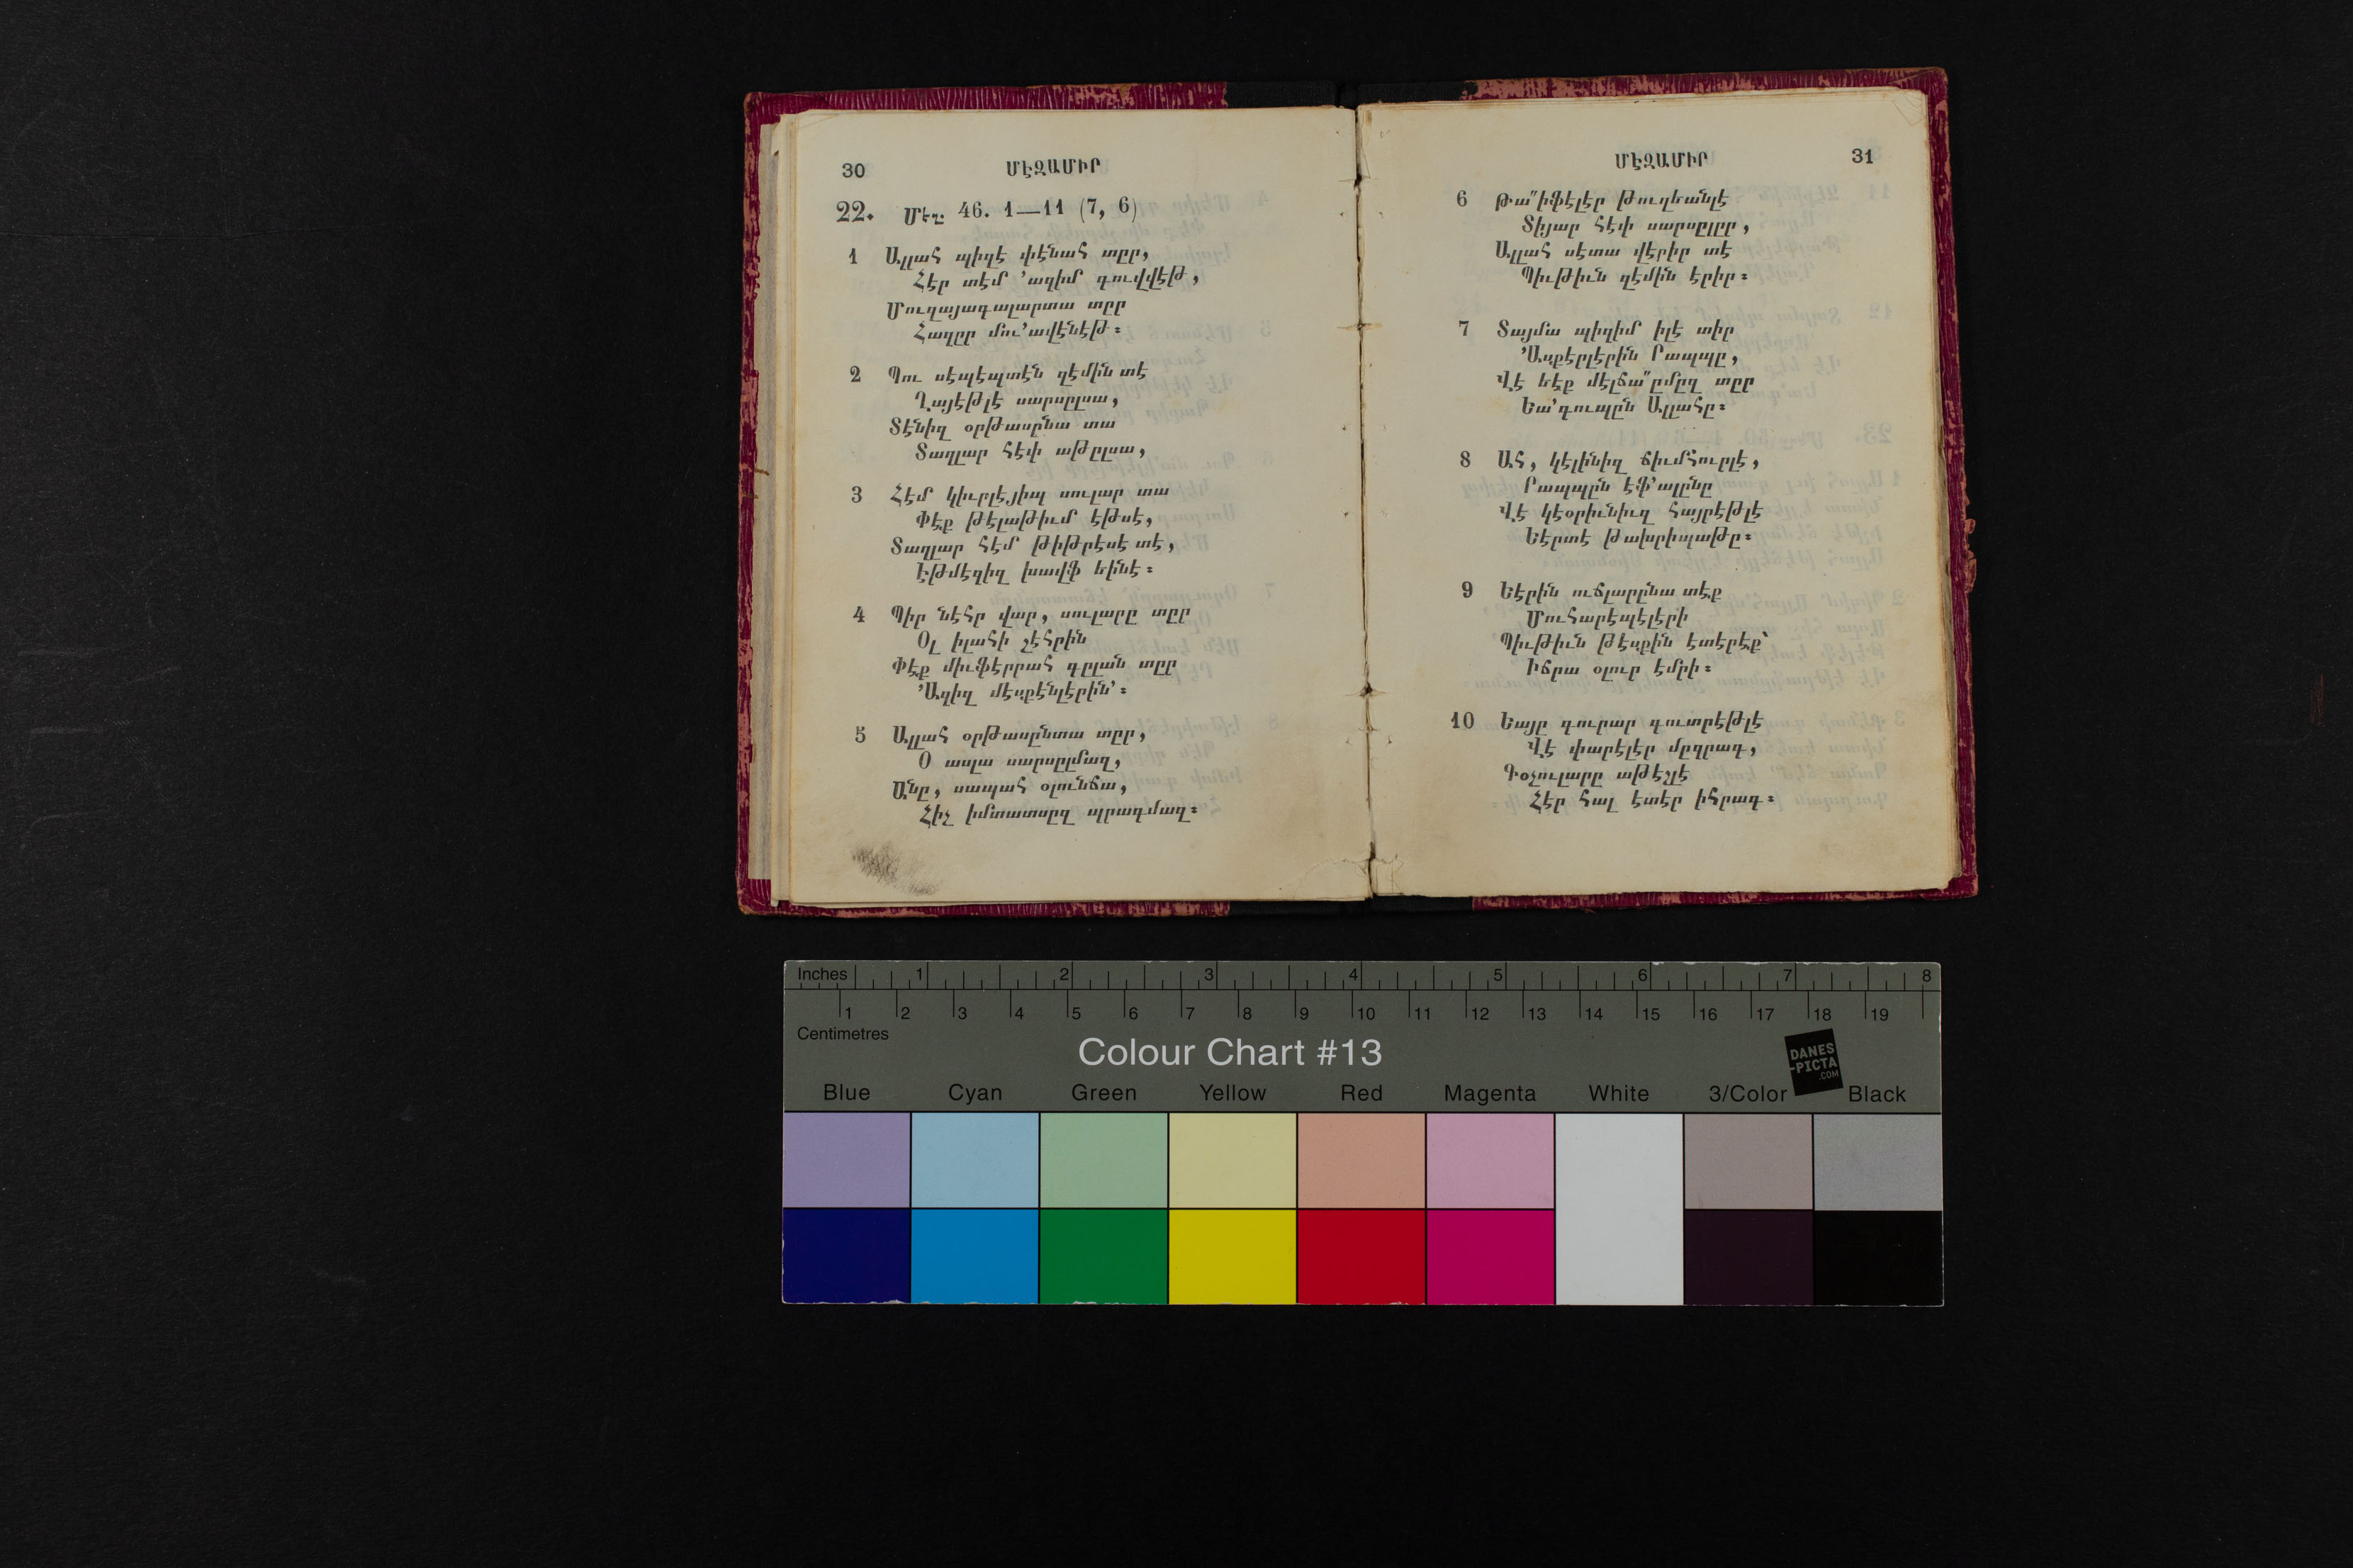 30 ՄԷԶԱՄԻՐ
22. Մէզ. 46. 1—11 (7, 6)
1 Ալլահ պիզէ փէնահ տըր,
Հէր տէմ ՛ազիմ գուվվէթ,
Մուզայագալարտա տըր
Հազըր մու՛ավէնէթ։
2 Պու սէպէպտէն զէմին տէ
Ղայէթլէ սարսըլսա,
Տէնիզ օրթասընա տա
Տաղլար հէփ աթըլսա,
3 Հէմ կիւրլէյիպ սուլար տա
Փէք թէլաթիւմ էթսէ,
Տաղլար հէմ թիթրէսէ տէ,
Էթմէզիզ խավֆ եինէ։
4 Պիր նէհր վար, սուլարը տըր
Օլ իլահի շէհրին
Փէք միւֆէրրահ գըլան տըր
՛Ազիզ մէսքէնլէրին՛։
5 Ալլահ օրթասընտա տըր,
Օ ասլա սարսըլմազ,
Անը, սապահ օլունճա,
Հիչ իմտատսըզ պրագմազ։
ՄԷԶԱՄԻՐ 31
6 Թա՞իֆէլէր թուղեանլէ
Տիյար հէփ սարսըլըր,
Ալլահ սէտա վէրիր տէ
Պիւթիւն զէմին էրիր։
7 Տայմա պիզիմ իլէ տիր
՛Ասքէրլէրին Րապպը,
Վէ եէք մէլճա՞ըմըզ տըր
Եա՛գուպըն Ալլահը։
8 Ահ, կէլինիզ ճիւմհուրլէ,
Րապպըն էֆ՛ալընը
Վէ կէօրիւնիւզ հայրէթլէ
Եէրտէ թախրիպաթը։
9 Եէրին ուճլարընա տէք
Մուհարէպէլէրի
Պիւթիւն թէսքին էտէրէք՝
Իճրա օլուր էմրի։
10 Եայը գուրար գուտրէթլէ
Վէ փարէլէր մըզրագ,
Գօչուլարը աթէշլէ
Հէր հալ էտէր իհրագ։
Inches 1 2 3 4 5 6 7 8
1 2 3 4 5 6 7 8 9 10 11 12 13 14 15 16 17 18 19
Centimetres
Colour Chart #13
DANES
-PICTA
.COM
Blue Cyan Green Yellow Red Magenta White 3/Color Black